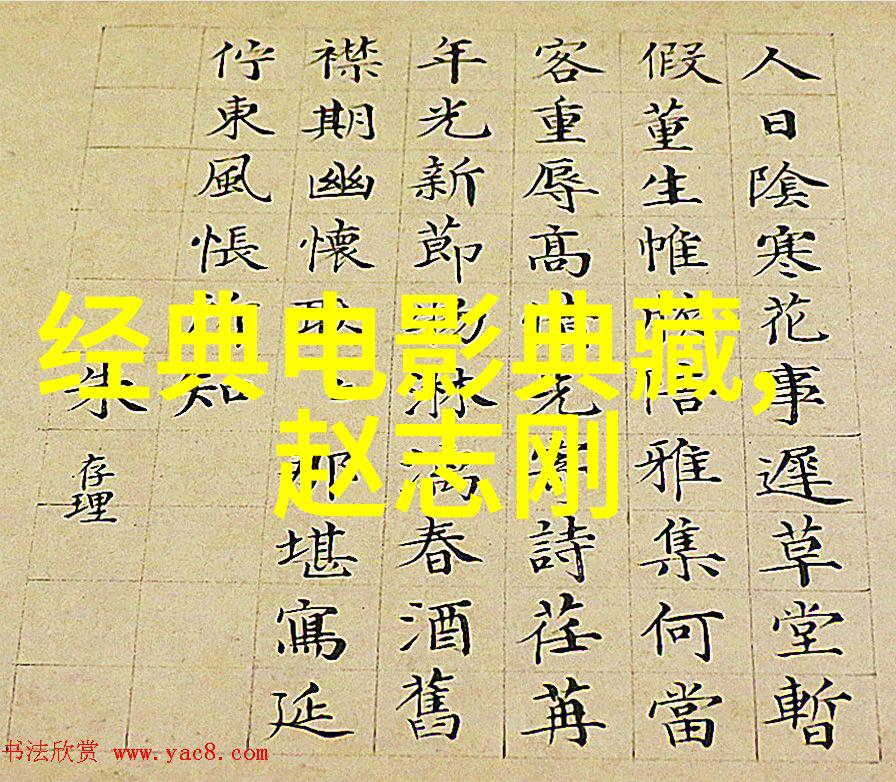 人日陰寒花事遲草堂暫
假董生帷雅集何當
客重辱高情先詩荏苒
年光新節物淋漓春酒舊
襟期幽懷耿那堪寫延
佇東風悵知
朱
存理
经典电影典藏,
赵志刚
书法欣赏 www.yac8.com